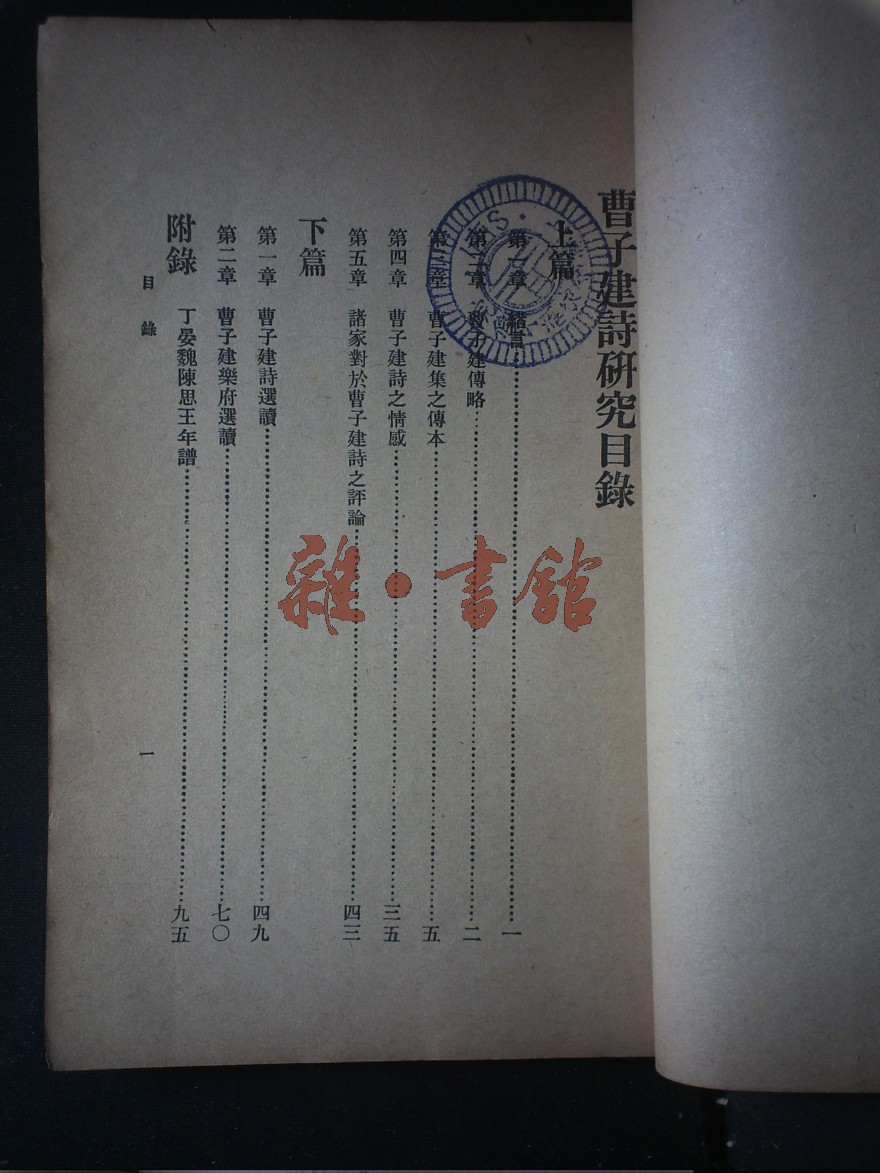 曹子建詩研究目錄
上篇
第一章 緒言 一
第二章 曹子建傳略 二
第三章 曹子建集之傳本 五
第四章 曹子建詩之情感 三五
第五章 諸家對於曹子建詩之評論 四三
下篇
第一章 曹子建詩選讀 四九
第二章 曹子建樂府選讀 七〇
附錄
丁晏魏陳思王年譜 九五
目錄
一
雜·書館